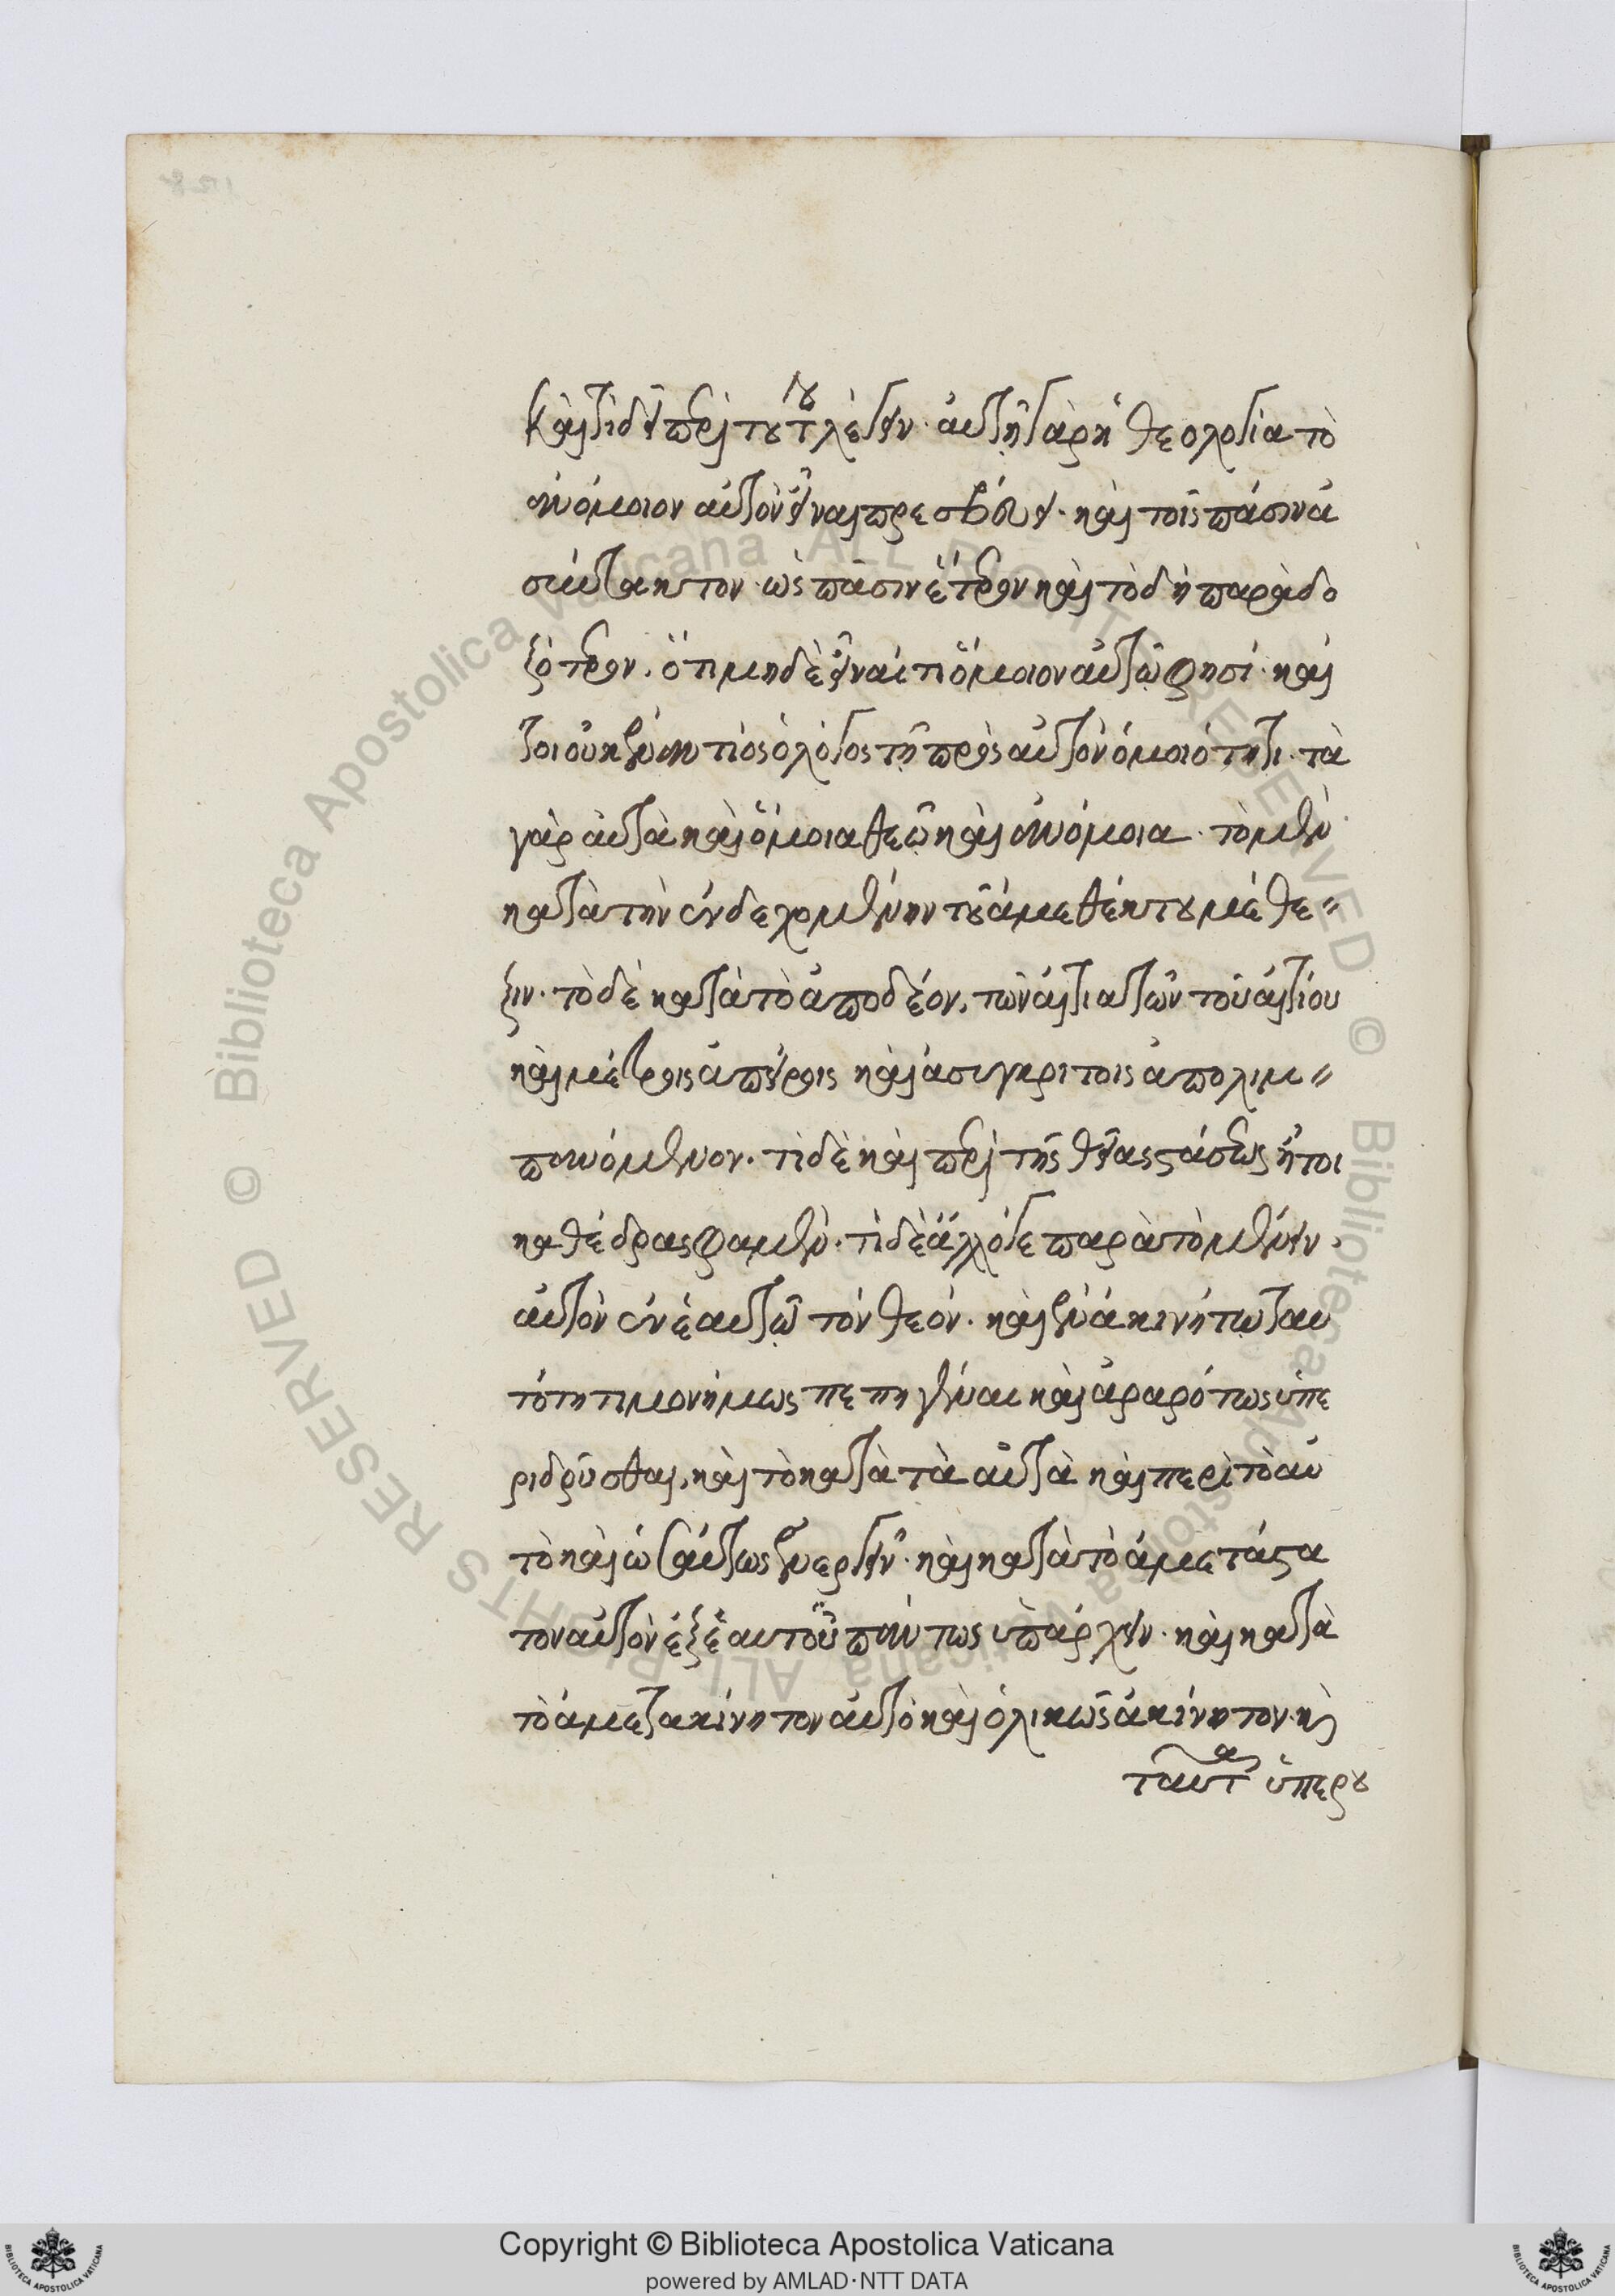 Καὶ τί δεῖ περὶ τούτου λέγειν. αὐτὴ γὰρ ἡ θεολογία τὸ
ἀνόμοιον αὐτὸν εἶναι πρεσβεύει. καὶ τοῖς πᾶσιν ἀ
σύντακτον. ὡς πᾶσιν ἕτερον καὶ τὸ δὴ παραδο
ξότερον. ὅτι μηδὲ εἶναί τι ὅμοιον αὐτῷ φησί. καί
τοι οὐκ ἐναντίος ὁ λόγος τῇ πρὸς αὐτὸν ὁμοιότητι. τὰ
γὰρ αὐτὰ καὶ ὅμοια θεῷ καὶ ἀνόμοια. τὸ μὲν
κατὰ τὴν ἐνδεχομένην τοῦ ἀμεθέκτου μέθε〃
ξιν. τὸ δὲ κατὰ τὸ ἀποδέον, τῶν αἰτιατῶν τοῦ αἰτίου
καὶ μέτροις ἀπείροις καὶ ἀσυγκρίτοις ἀπολιμ〃
πανόμενον. τί δὲ καὶ περὶ τῆς θείας στάσεως ἤτοι
καθέδρας φαμέν. τί δὲ ἄλλό γε παρὰ τὸ μένειν.
αὐτὸν ἐν ἑαυτῷ τὸν θεόν. καὶ ἐν ἀκινήτῳ ταυ
τότητι μονίμως πεπηγέναι καὶ ἀραρότως ὑπε
ριδρύσθαι, καὶ τὸ κατὰ τὰ αὐτὰ καὶ περὶ τὸ αὐ
τὸ καὶ ὡσαύτως ἐνεργεῖν. καὶ κατὰ τὸ ἀμετάστα
τον αὐτὸν ἐξ ἑαυτοῦ πάντως ὑπάρχειν. καὶ κατὰ
τὸ ἀμετακίνητον αὐτὸ καὶ ὁλικῶς ἀκίνητον. κὶ
ταῦτα ὑπερου